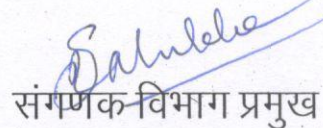 संगणक विभाग प्रमुख